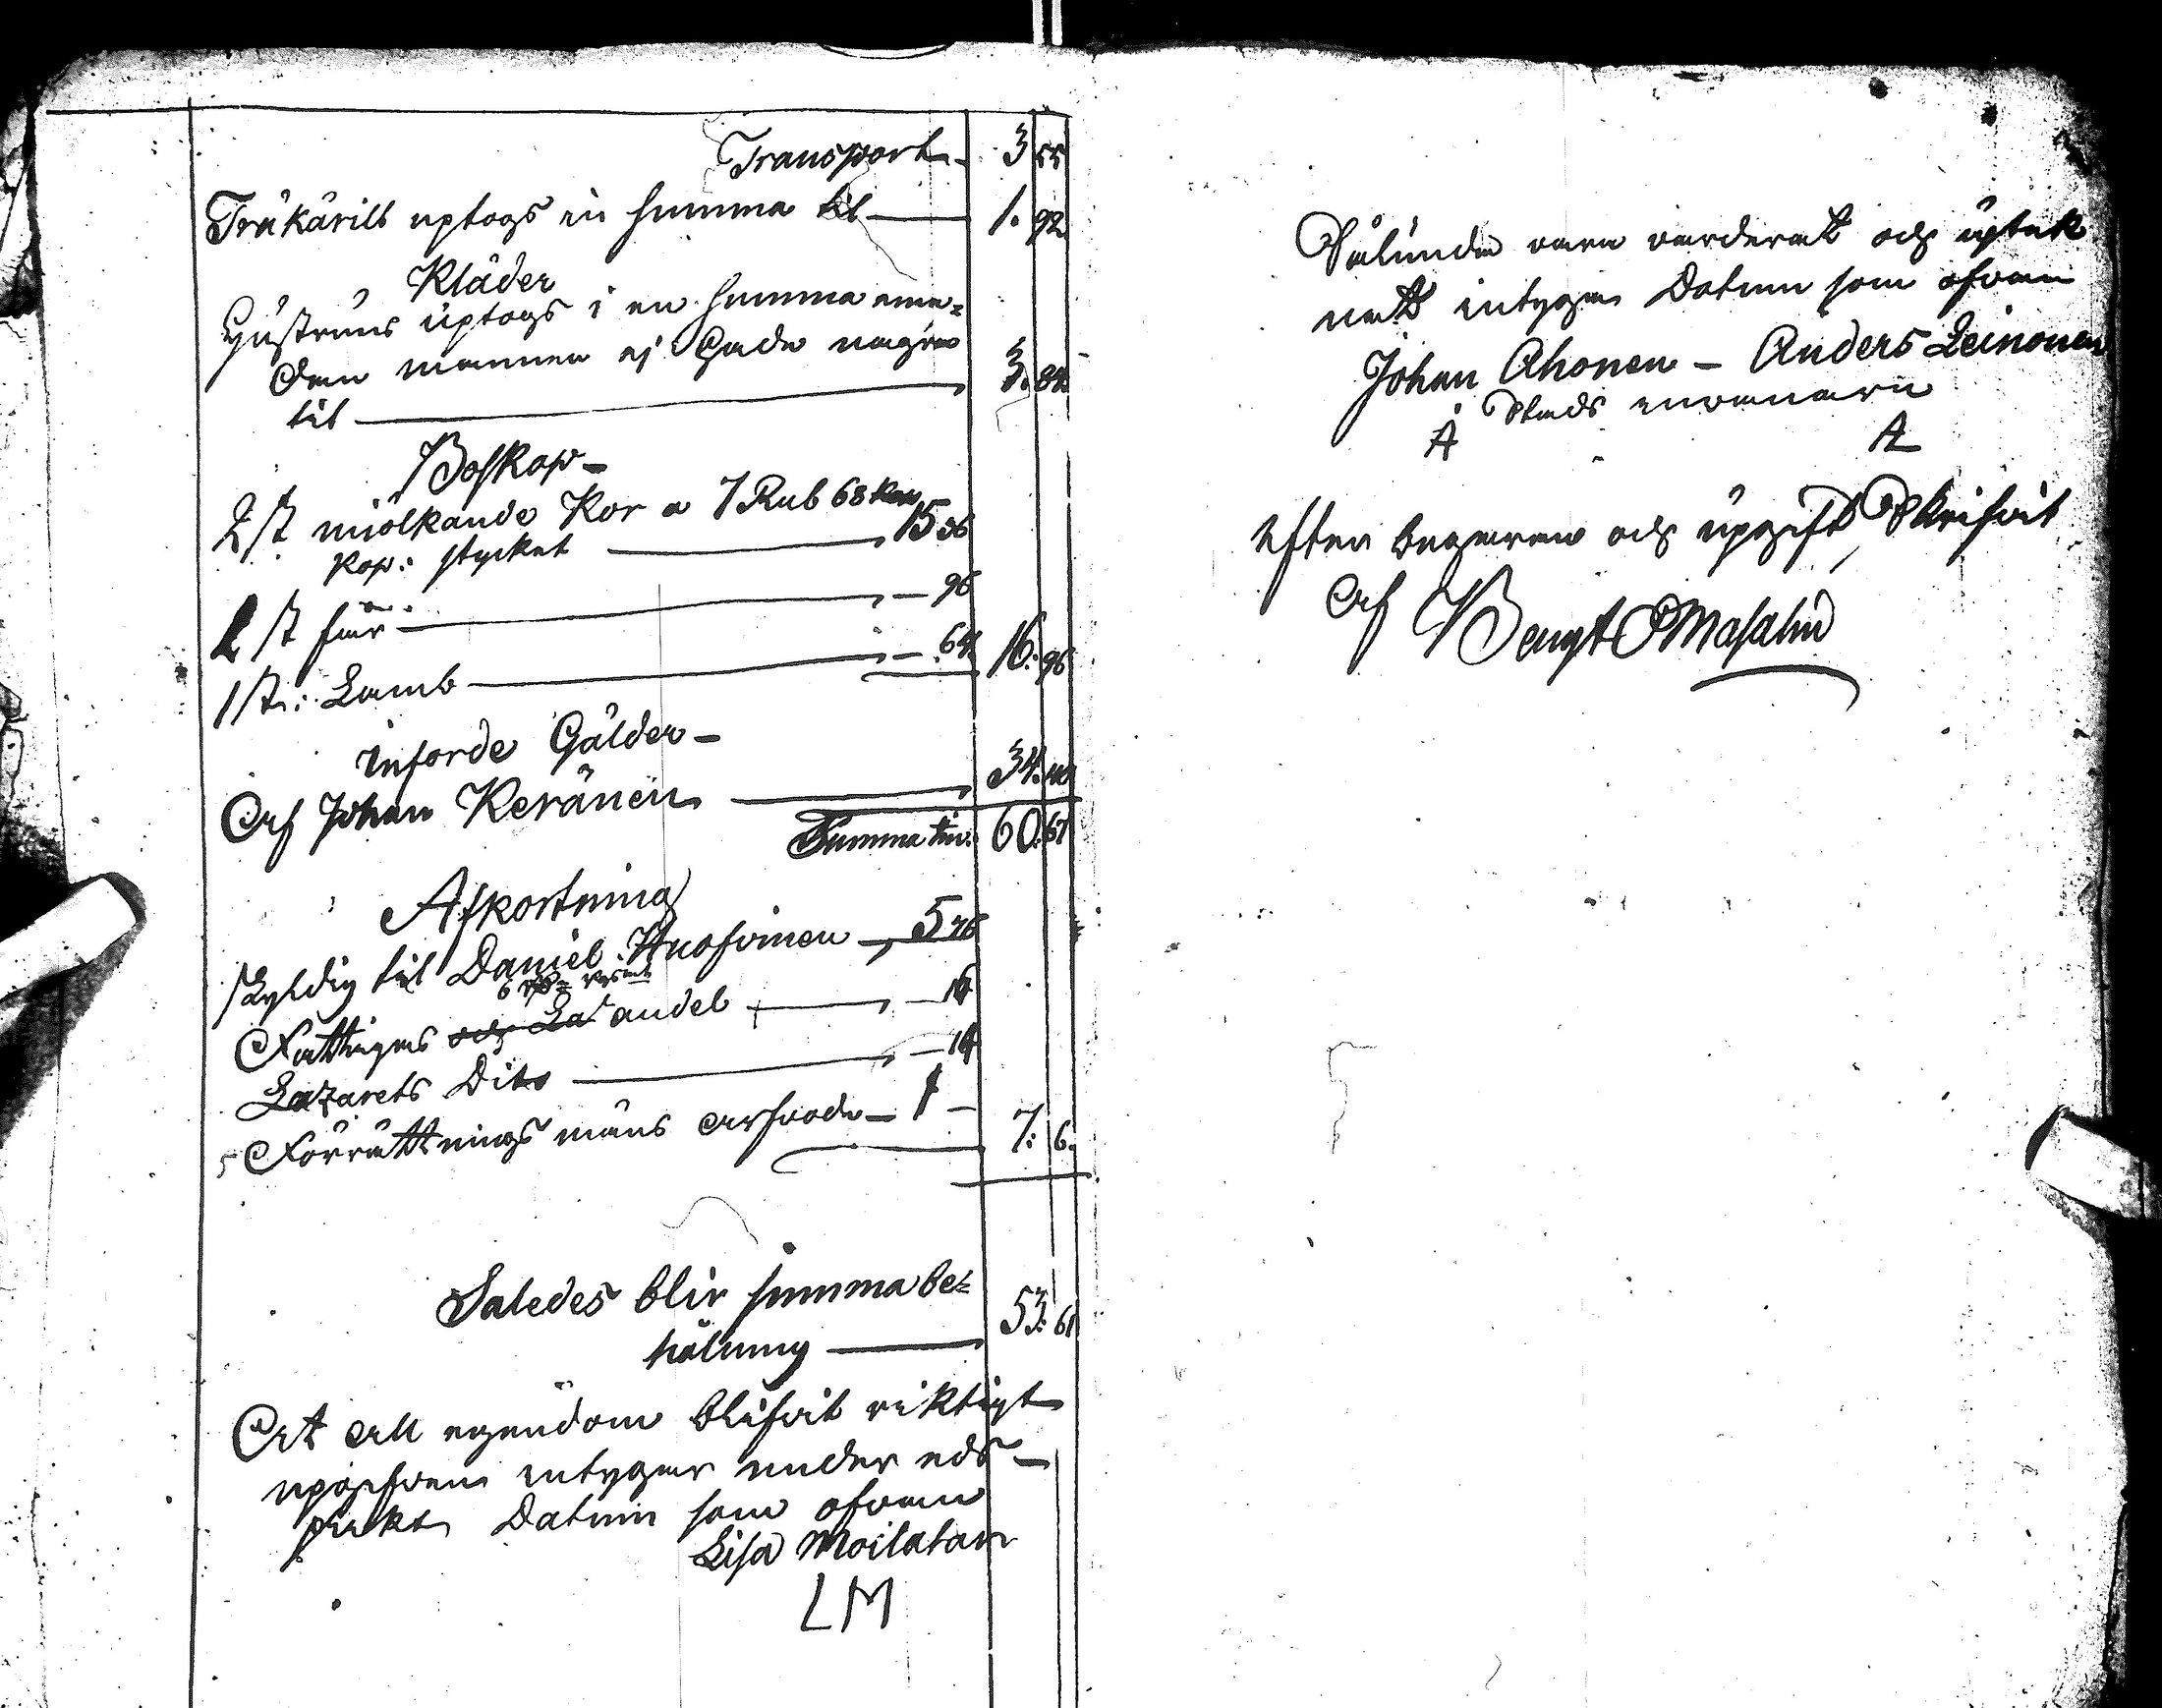 Transport 3 55
Träkärill uptogs in summa til 1. 92
Kläder
Hustruns uptogs i en summa eme=
dan mannen ej hade någre
til 3. 84
Boskap
2 st miölkande Kor a 7 Rub 68 kop
kop: stycket 15 36
2 st får 96
1 st: Lamb 64 16: 96
införde Gälder
Af Johan Keränen 34: 40
Summa 60: 67
Afkortning
skyldig til Daniel Huofvinen 5 76
Fattigas och La andel
Lazarets Dito
Förrättnings mäns arfvode 1
7: 6.
Saledes blir summa be=
hålning 53: 61
At all egendom blifvit riktigt
upgifven intygar under eds
plikt Datum som ofvan
Lisa Moilatar
LM
Sålunda vara värderat och uptek
nat intygar Datum som ofvan
Johan Ahonen – Anders Leinonen
A A
Efter begäran och upgift Skrifvit
af Bengt OMasalin